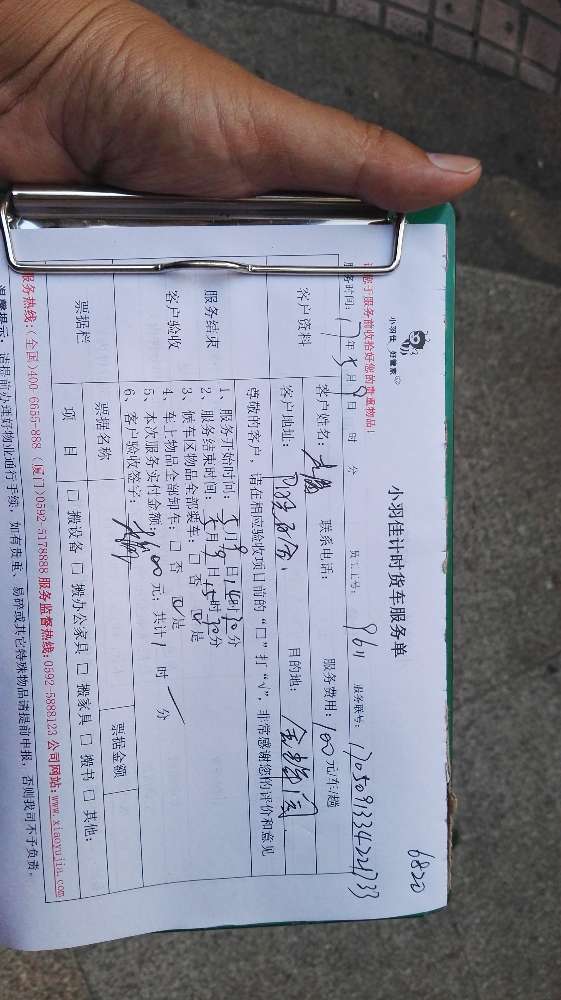 6820
小羽佳 好管家
小羽佳计时货车服务单
请您于服务前收拾好您的贵重物品!
服务时间: 17年5月9日 时 分 员工工号: 961 服务联号: 1705091334221733
客户资料 客户姓名: 联系电话: 服务费用: 100元/车/趟
客户地址: 目的地:
尊敬的客户,请在相应验收项目前的“□”打“√”,非常感谢您的评价和意见
服务结束
客户验收
1、服务开始时间: 5月9日14时30分
2、服务结束时间: 5月9日15时30分
3、候车区物品全部装车: □ 否 ☑ 是
4、车上物品全部卸车: □ 否 ☑ 是
5、本次服务实付金额: 100元; 共计1时 分
6、客户验收签字:
票据栏 票据名称 票据金额
项 目 □ 搬设备 □ 搬办公家具 □ 搬家具 □ 搬书 □ 其他:
服务热线:(全国)400 6655-888 (厦门)0592-5178888 服务监督热线:0592-5888123 公司网站:www.xiaoyujia.com
温馨提示: 请提前办理好物业通行手续, 如有贵重、易碎或其它特殊物品请提前申报, 否则我司不予负责。